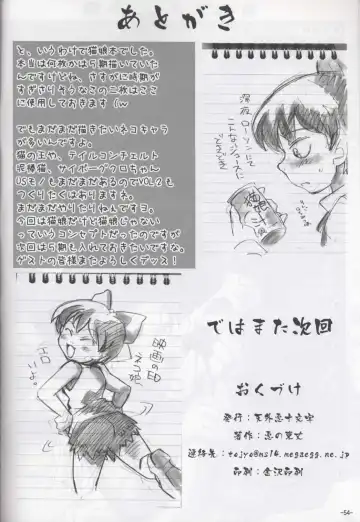 あとがき
と、いうわけで猫娘本でした。
本当は何枚かは5期描いていた
んですけどね、さすがに時期が
すぎさりそうなこの二枚はここ
に使用しておきます（w
でもまだまだ描きたいネコキャラ
が多いんですよ。
猫の王や、テイルコンチェルト
泥棒猫、サイボーグクロちゃん
USモノもまだまだあるのでVOL2も
つくりたくはありますネ。
まだまだやりたりねんですヨ。
今回は猫娘だけど猫娘じゃない
っていうコンセプトだったのですが
次回は5期も入れておきたいですな。
ゲストの皆様またよろしくデッス！
深夜ローソンにて
こんなジュースに
ではまた次回
おくづけ
発行：天外悪十文字
連絡先：tojyo@ns16.megaegg.ne.jp
印刷：金沢印刷
-54-